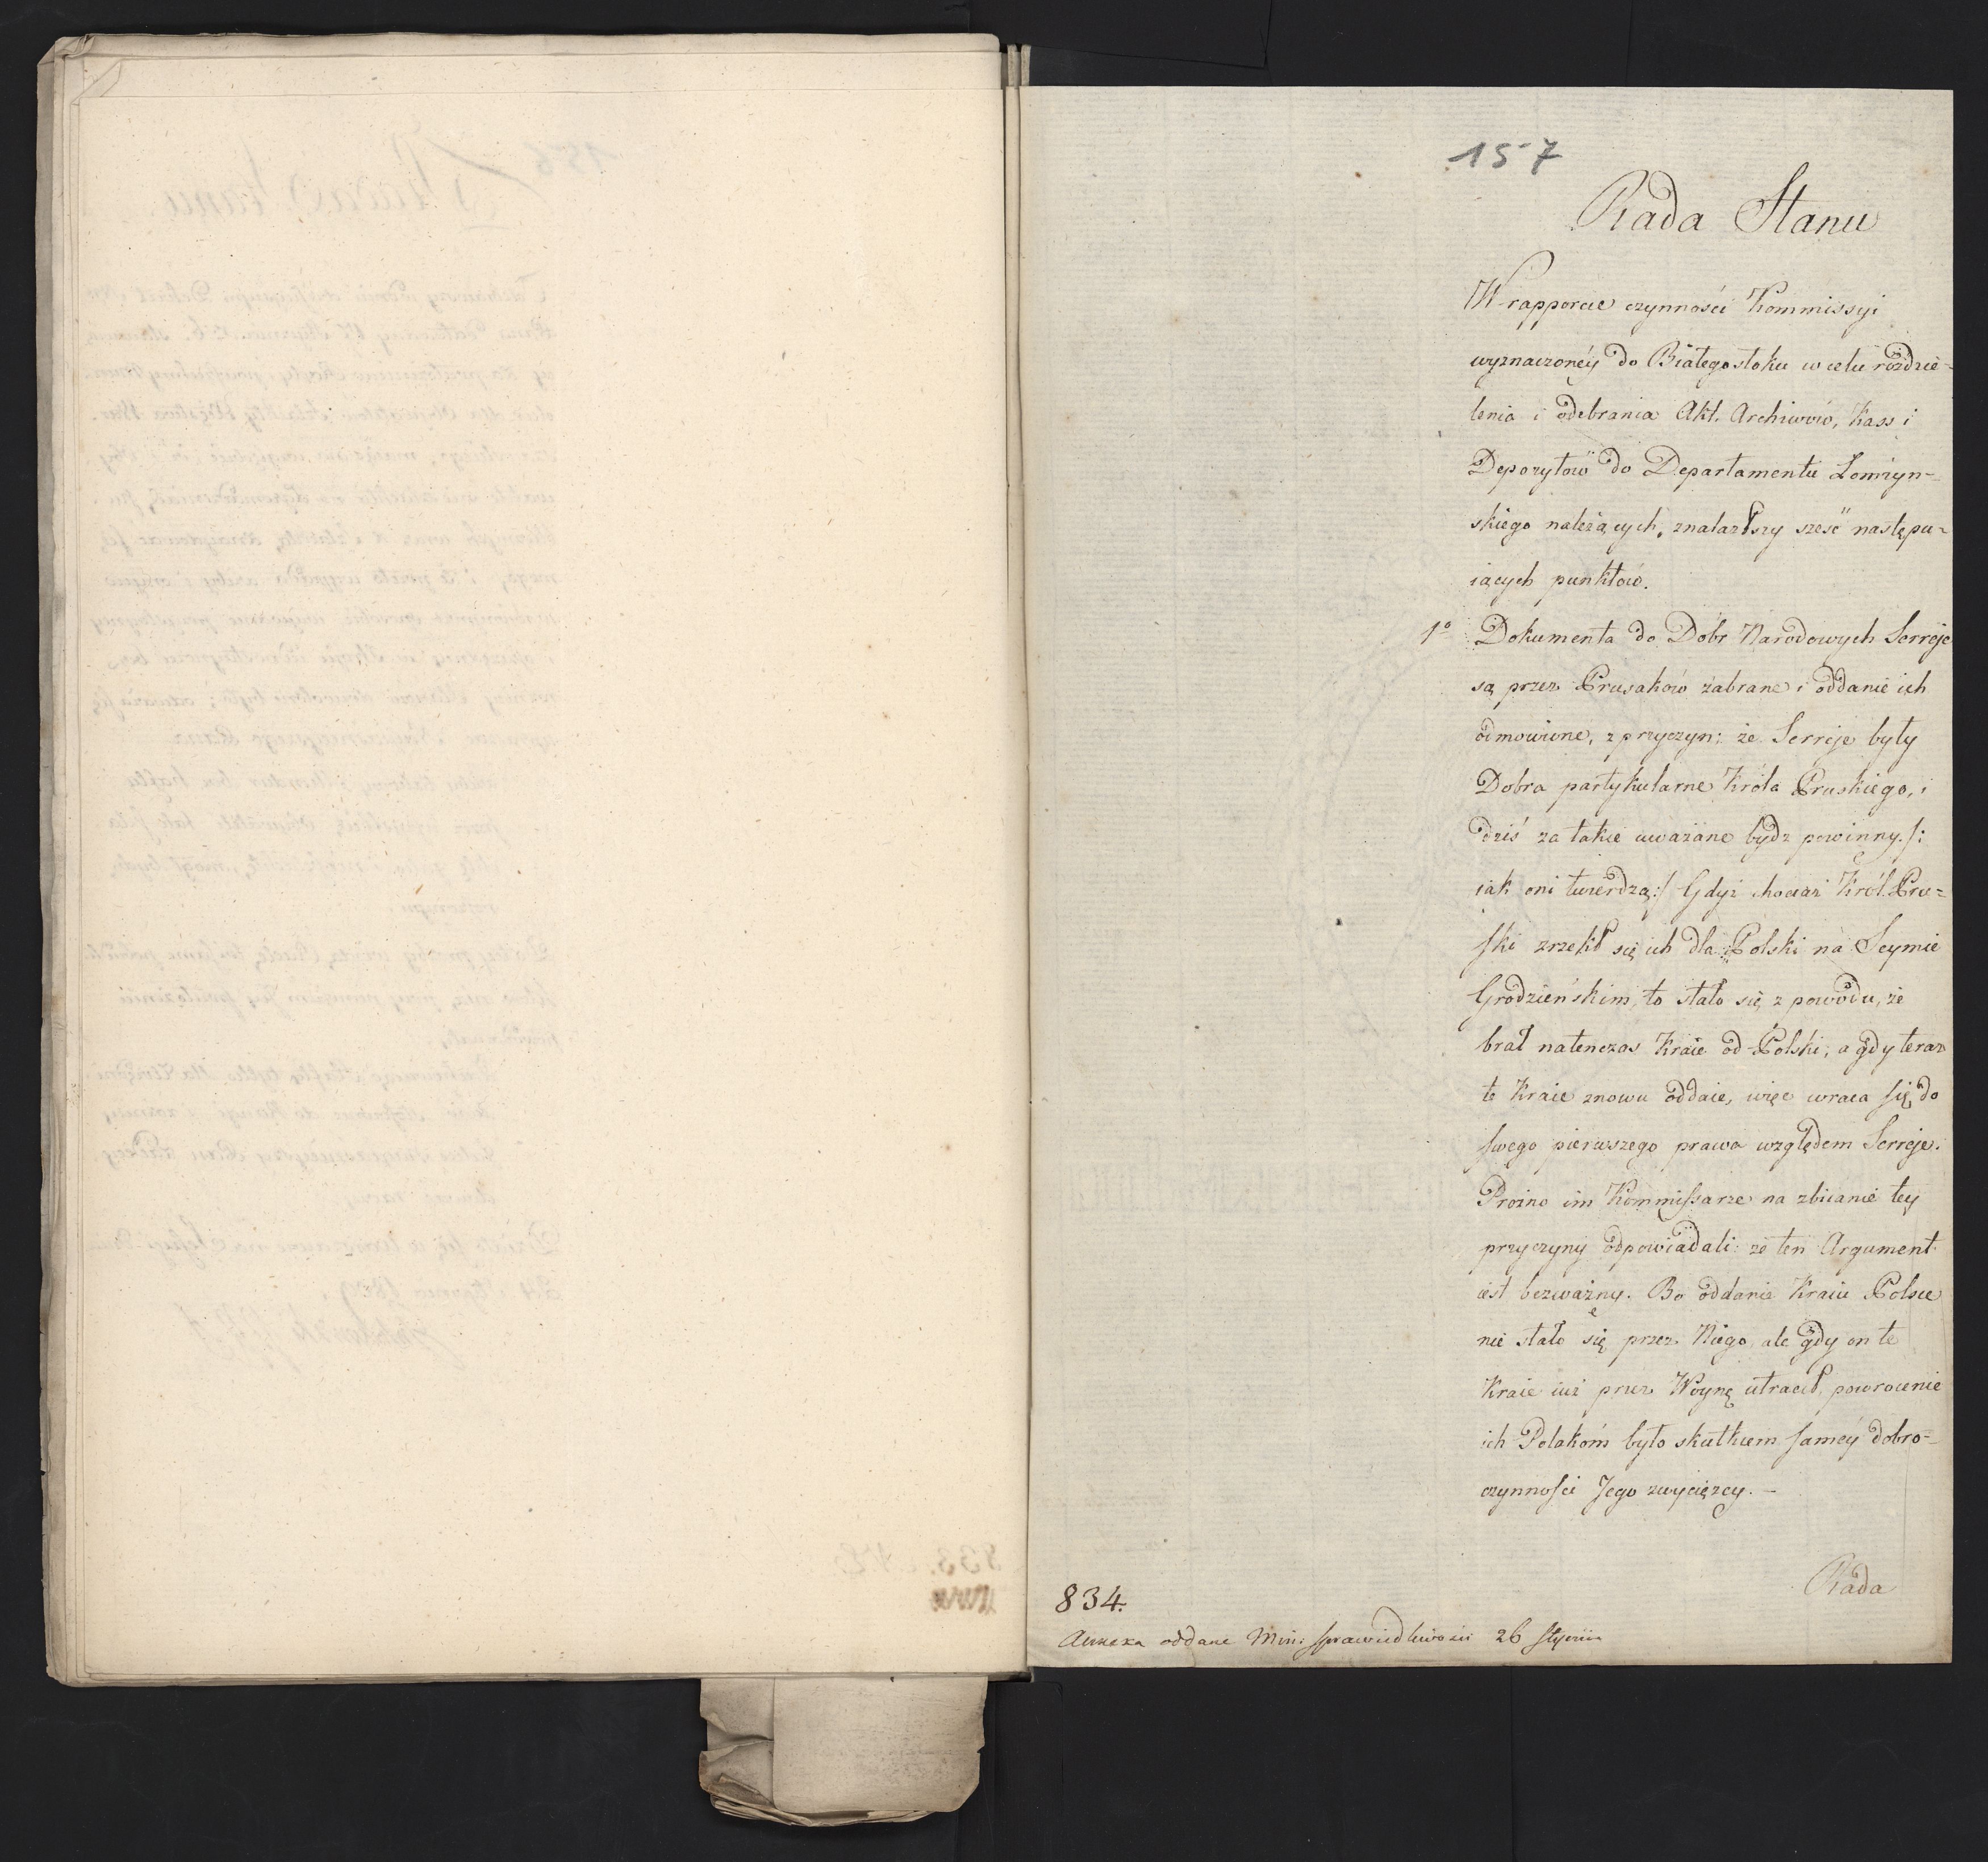 157
Rada Stanu
W rapporcie czynności Kommissyi
wyznaczonéy do Białegostoku w celu rozdzie-
lenia i odebrania Akt. Archiwów, Kass i
Depozytow do Departamentu Łomżyn-
skiego należących, znalazłszy sześć następu-
iących punktow.
1° Dokumenta do Dóbr Narodowych Serreje
są przez Prusaków zabrane i oddanie ich
odmowione, z przyczyn: że Serreje były
Dobra partykularne Króla Pruskiego, i
dziś za takie uważane bydz powinny /:
iak oni twierdzą:/ Gdyż chociaż Król Pru-
ski zrzekł się ich dla Polski na Seymie
Grodzieńskim, to stało się z powodu, że
brał natenczas Kraie od Polski, a gdy teraz
te Kraie znowu oddaie, więc wraca się do
swego pierwszego prawa względem Serreje.
Prożno im Kommissarze na zbicanie tey
przyczyny odpowiadali: że ten Argument
iest bezważny. Bo oddanie Kraiu Polsce
nie stało się przez Niego, ale gdy on te
Kraie iuż przez Woynę utracił, powrocenie
ich Polakom było skutkiem saméy dobro-
czynności Jego zwycięzcy. –
Rada
834.
Annexa oddane Min: Sprawiedliwości 26 Stycznia